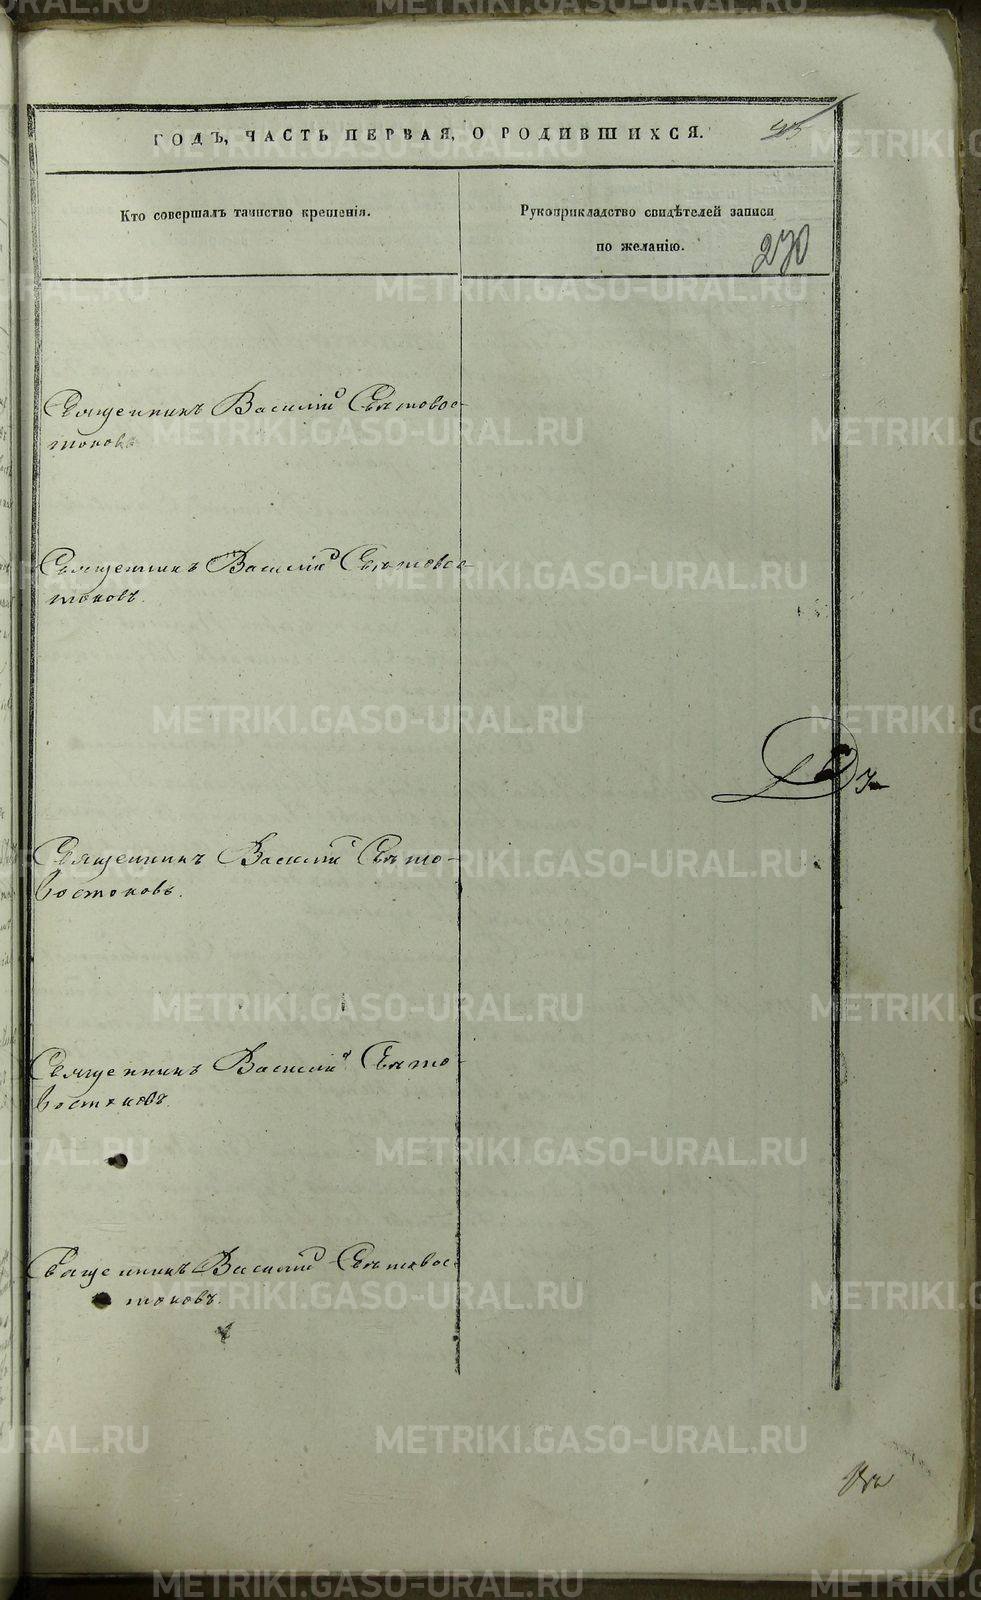 ГОДЪ, ЧАСТЬ ПЕРВАЯ, О РОДИВШИХСЯ.
Кто совершалъ таинство крещенія.
Рукоприкладство свидѣтелей записи
по желанію.
270
Священникъ Василій Святовос-
токовъ
Священникъ Василій Святовос-
токовъ.
Священникъ Василій Свято-
востоковъ.
Священникъ Василій Свято-
востоковъ.
Священникъ Василій Святовос-
токовъ.
METRIKI.GASO-URAL.RU